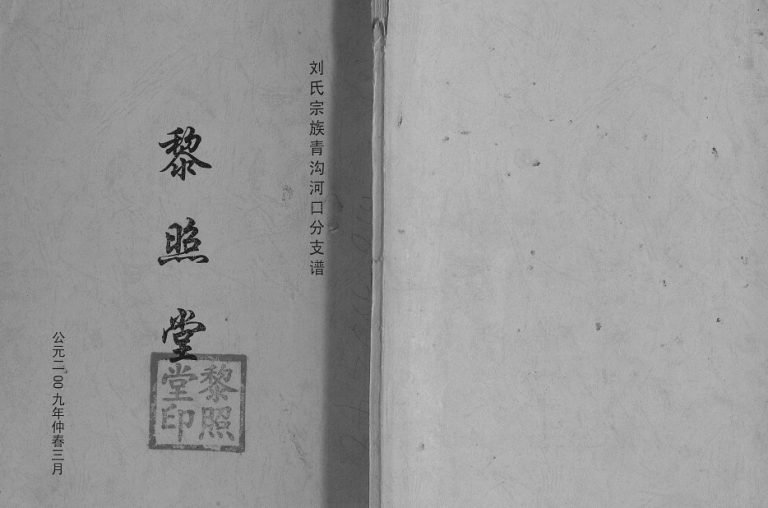 刘氏宗族青沟河口分支谱
黎照堂
黎照
堂印
公元二00九年仲春三月